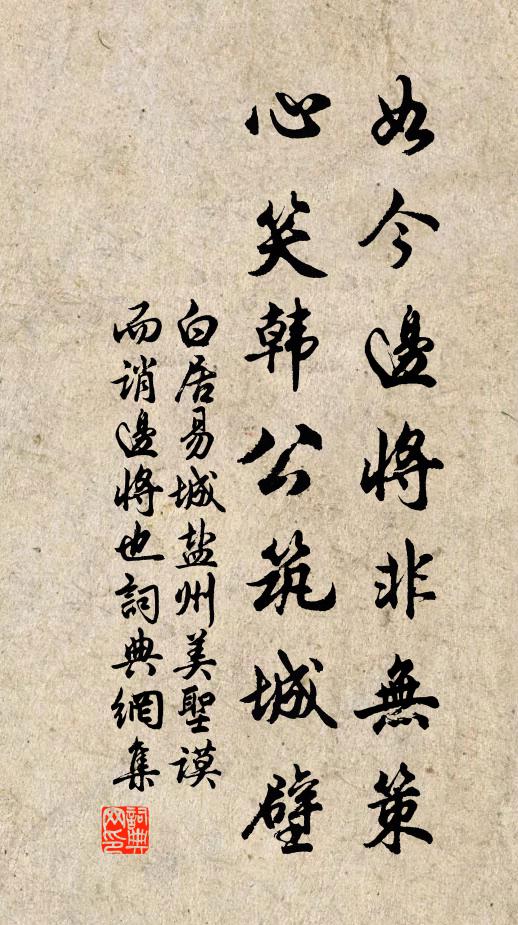 如今邊將非無策
心笑韓公筑城壁
白居易城盐州美聖謨
而誚邊將也詞典網集
詞典
网印